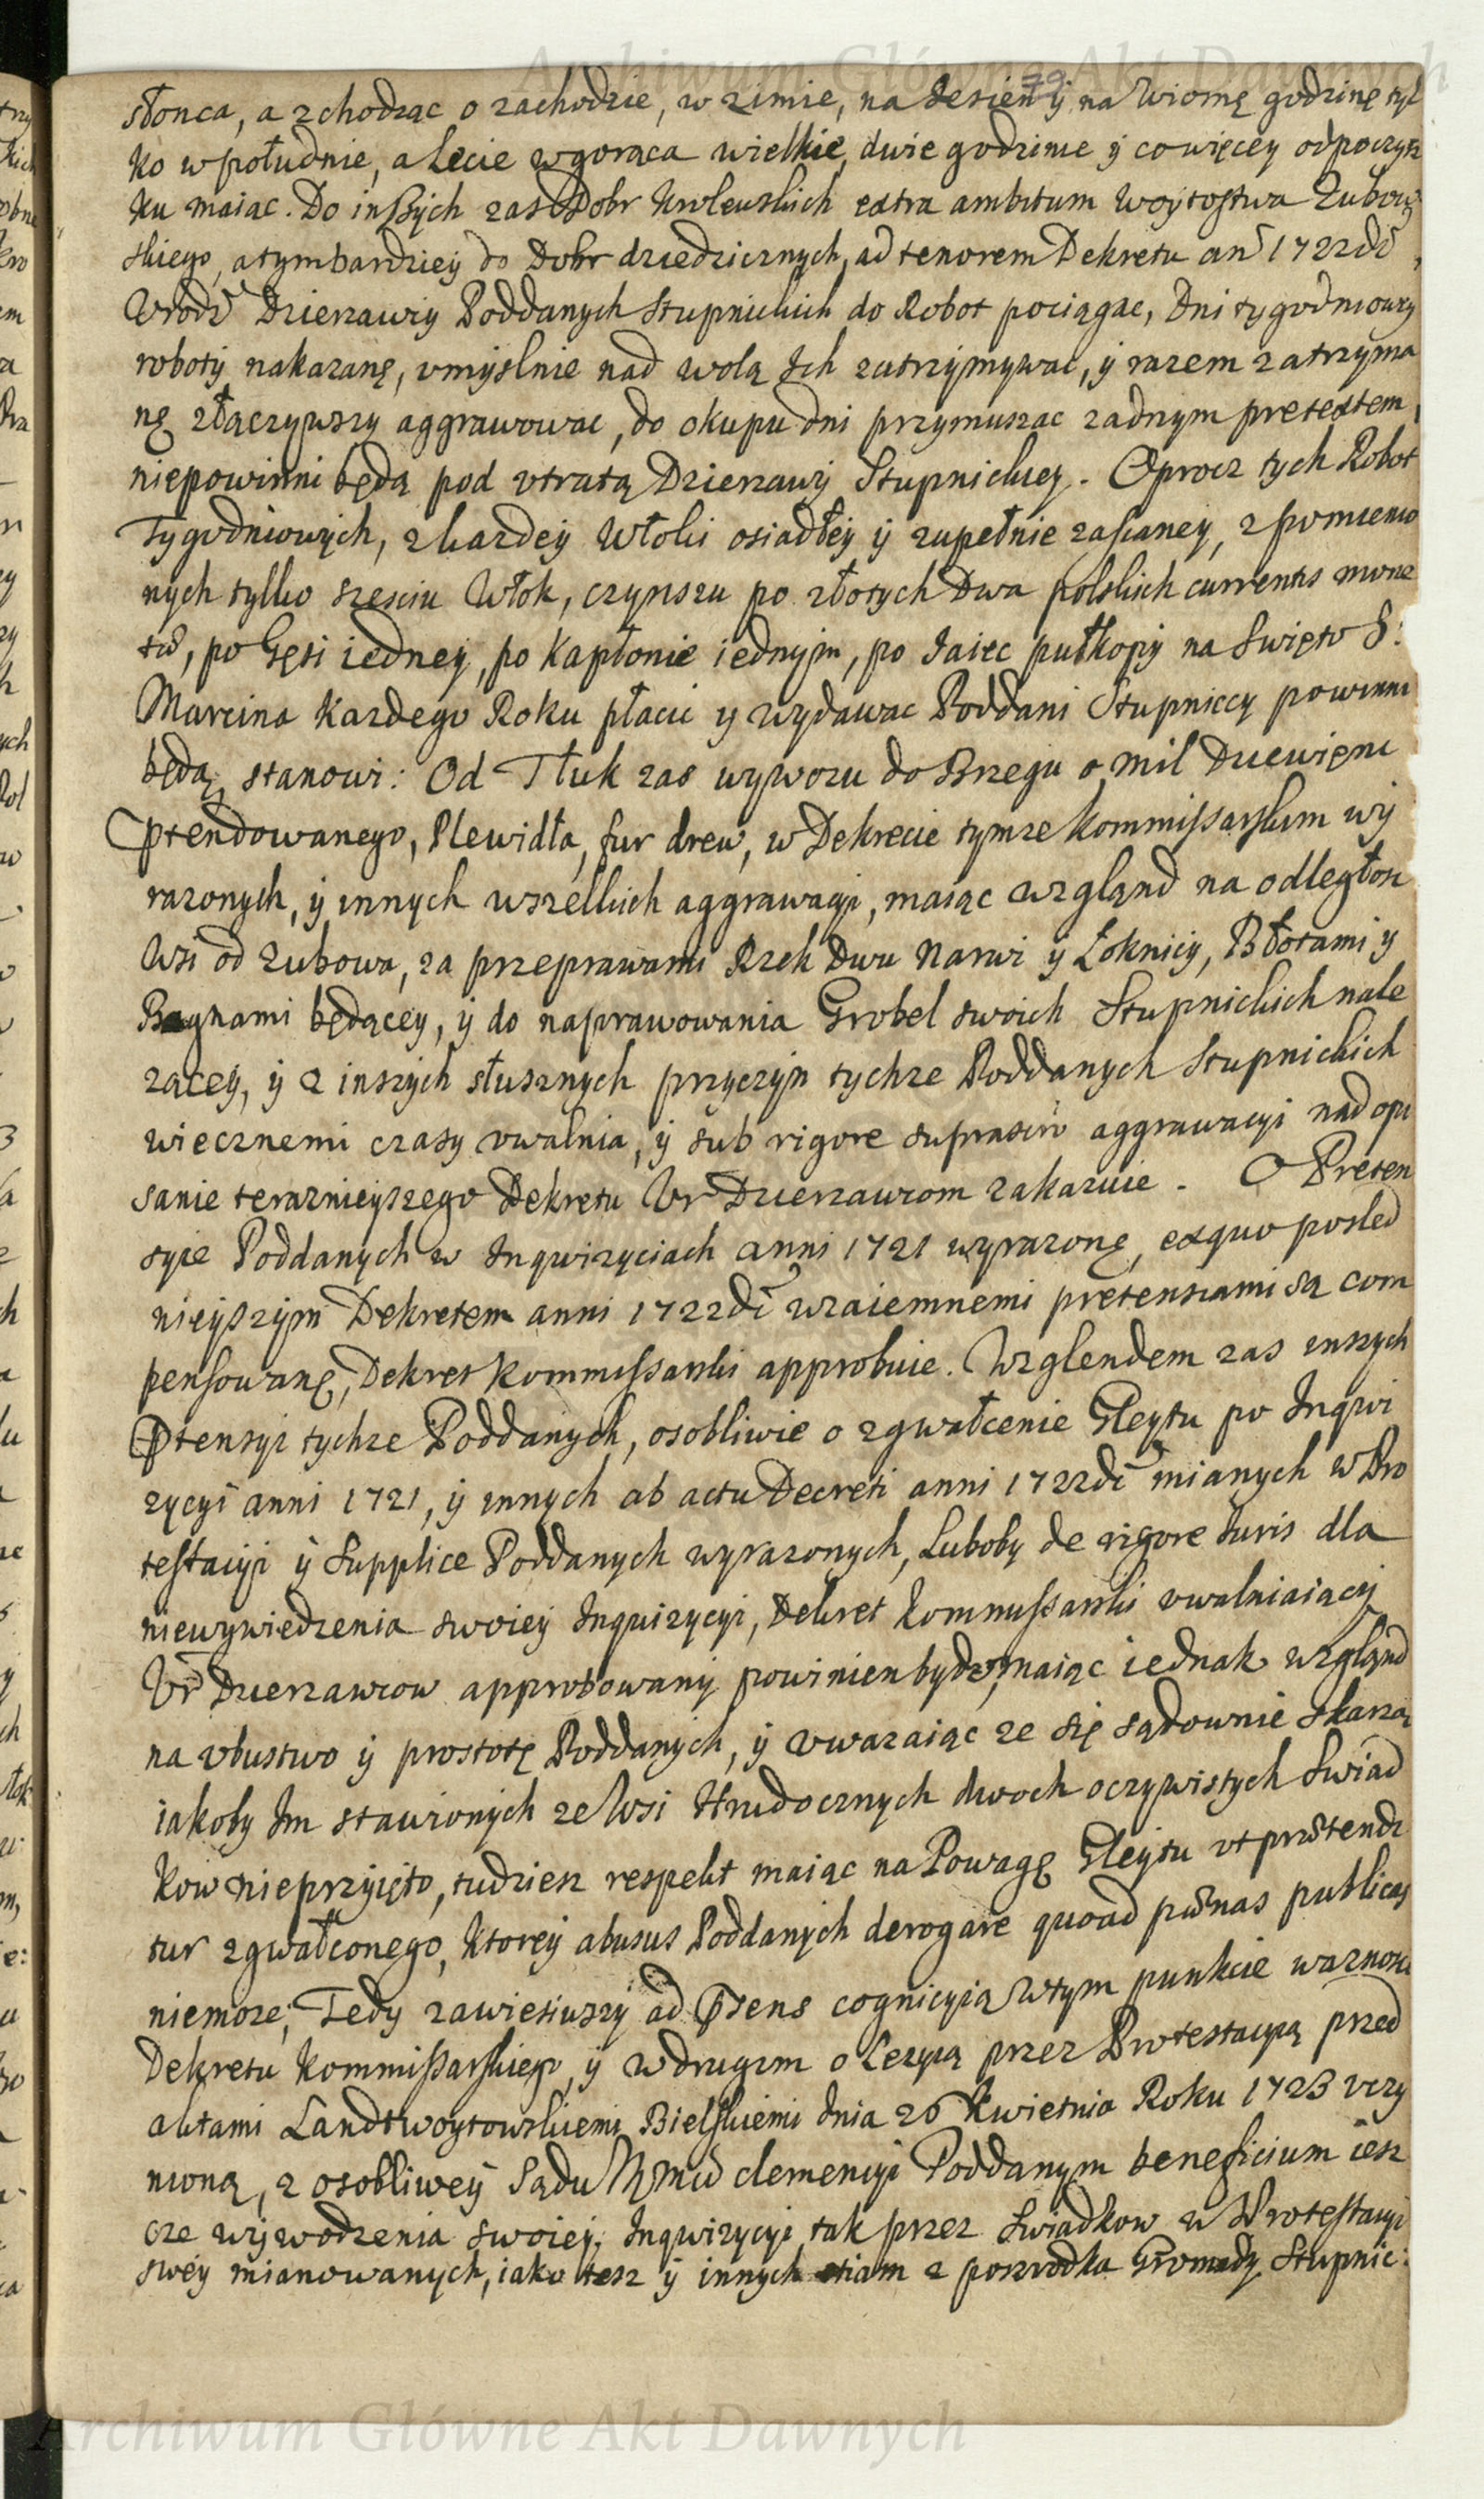 Archiwum Główne Akt Dawnych
79
słonca, a zchodząc o zachodzie, w zimie, na Jesień ÿ na Wiosnę godzinę tyl
ko wpołudnie, a Lecie wgorąca wielkie, dwie godzinie ÿ cowięcey odpoczyn
ku maiąc. Do inßÿch zas Dobr Krolewskich extra ambitum Woÿtostwa Zubow
skiego, atymbardzieÿ do Dobr dziedzicznych, ad tenorem Dekretu anĩ 1722dĩ
Vrodz̃ Dzierzawcÿ Poddanych Stupnickich do Robot pociągac, Dni tygodniowey
robotÿ nakazanę, vmÿslnie nad wolą Ich zatrzÿmÿwac, ÿ razem zatrzÿma
nę złączÿwszÿ aggrawowac, do okupu dni przymuszac zadnym pretextem
niepowinni będą pod vtratą Dzierzawÿ Stupnickieÿ. Oprocz tych Robot
Tygodniowÿch, z kazdeÿ Włoki osiadłeÿ ÿ zupełnie zasianeÿ, z pomienio
nych tylko szesciu Włok, czynszu po złotych Dwa polskich currentis mone
tæ, po Gęsi iedneÿ, po kapłonie iednÿm, po Jaiec pułkopÿ na Swięto S:
Marcina Kazdego Roku płacic ÿ wydawac Poddani Stupniccy powinni
będą, stanowi: Od Tłuk zas wywozu do Brzegu o mil Dziewięnc
ptendowanego, Plewidła, fur drew, w Dekrecie tymze kommißarskim wÿ
razonych, ÿ innych wszelkich aggrawacÿi, maiąc wzgląnd na odległosc
Wsi od Zubowa, za przeprawami Rzek Dwu Narwi ÿ Łoknicÿ, Błotami ÿ
Bagnami będącey, ÿ do naprawowania Grobel swoich Stupnickich nale
zącey, ÿ z inszÿch słusznych przyczÿn tychze Poddanych Stupnickich
wiecznemi czasy vwalnia, ÿ sub rigore suprascrõ aggrawacyi nad opi
sanie teraznieÿszego Dekretu Vr Dzierzawcom zakazuie. O Preten
sÿie Poddanych w Inqwizyciach anni 1721 wyrazonę, exquo posled
nieÿszÿm Dekretem anni 1722dĩ wzaiemnemi pretensiami są com
pensowanę, Dekret kommissarski approbuie. Wzglendem zas inszych
Ptensÿi tychze Poddanÿch, osobliwie o zgwałcenie Gleytu po Inqwi
zycyi anni 1721, ÿ innych ab actu Decreti anni 1722dĩ mianych w Pro
testacÿi ÿ Supplice Poddanych wyrazonych, Luboby de rigore Juris dla
niewywiedzenia swoieÿ Inquizycyi, Dekret kommissarski vwalniaiącÿ
Vr̃ Dzierzawcow approbowanÿ powinien byde, maiąc iednak wzgląnd
na vbustwo ÿ prostotę Poddanych, ÿ vwazaiąc ze się sądownie skarzą
iakoby Im stawionÿch ze Wsi Hrudocznych dwoch oczÿwistych Swiad
kow nieprzÿięto, tudziesz respekt maiąc na Powagę Gleÿtu vt prætendi
tur zgwałconego, ktoreÿ abusus Poddanych derogare quoad pœnas publicas
niemoze, Tedy zawiesiwszÿ ad Psens cognicyią Wtym punkcie waznosc
Dekretu kommißarskiego, ÿ wdrugim o Lezyią przez Protestacyią przed
aktami Landtwoytowskiemi Bielskiemi dnia 26 Kwietnia Roku 1723 vczy
nioną, z osobliweÿ Sądu clemencyi Poddanym beneficium iesz
cze wÿwodzenia swoieÿ Inqwizÿcyi tak przez Swiadkow w Protestacyi
sweÿ mianowanych, iako tesz ÿ innych etiam z poszrodka Gromady Stupnic:
Archiwum Główne Akt Dawnych